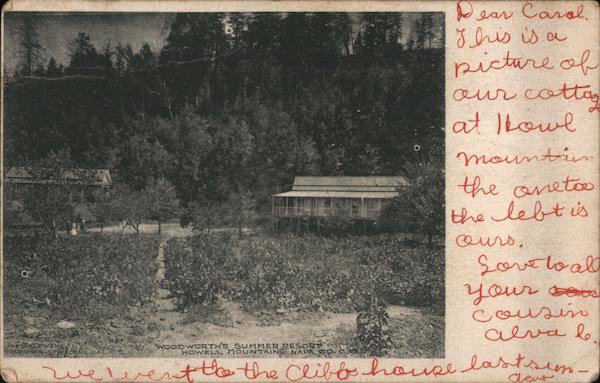 Dear Carol.
This is a
picture of
our cottag
at Howl
mountain
the one to
the left is
ours.
Love to all
your
cousin
alva
WOODWORTH'S SUMMER RESORT
HOWELL MOUNTAIN, NAPA CO. CAL.
We went to the Cliff house last sun-
day